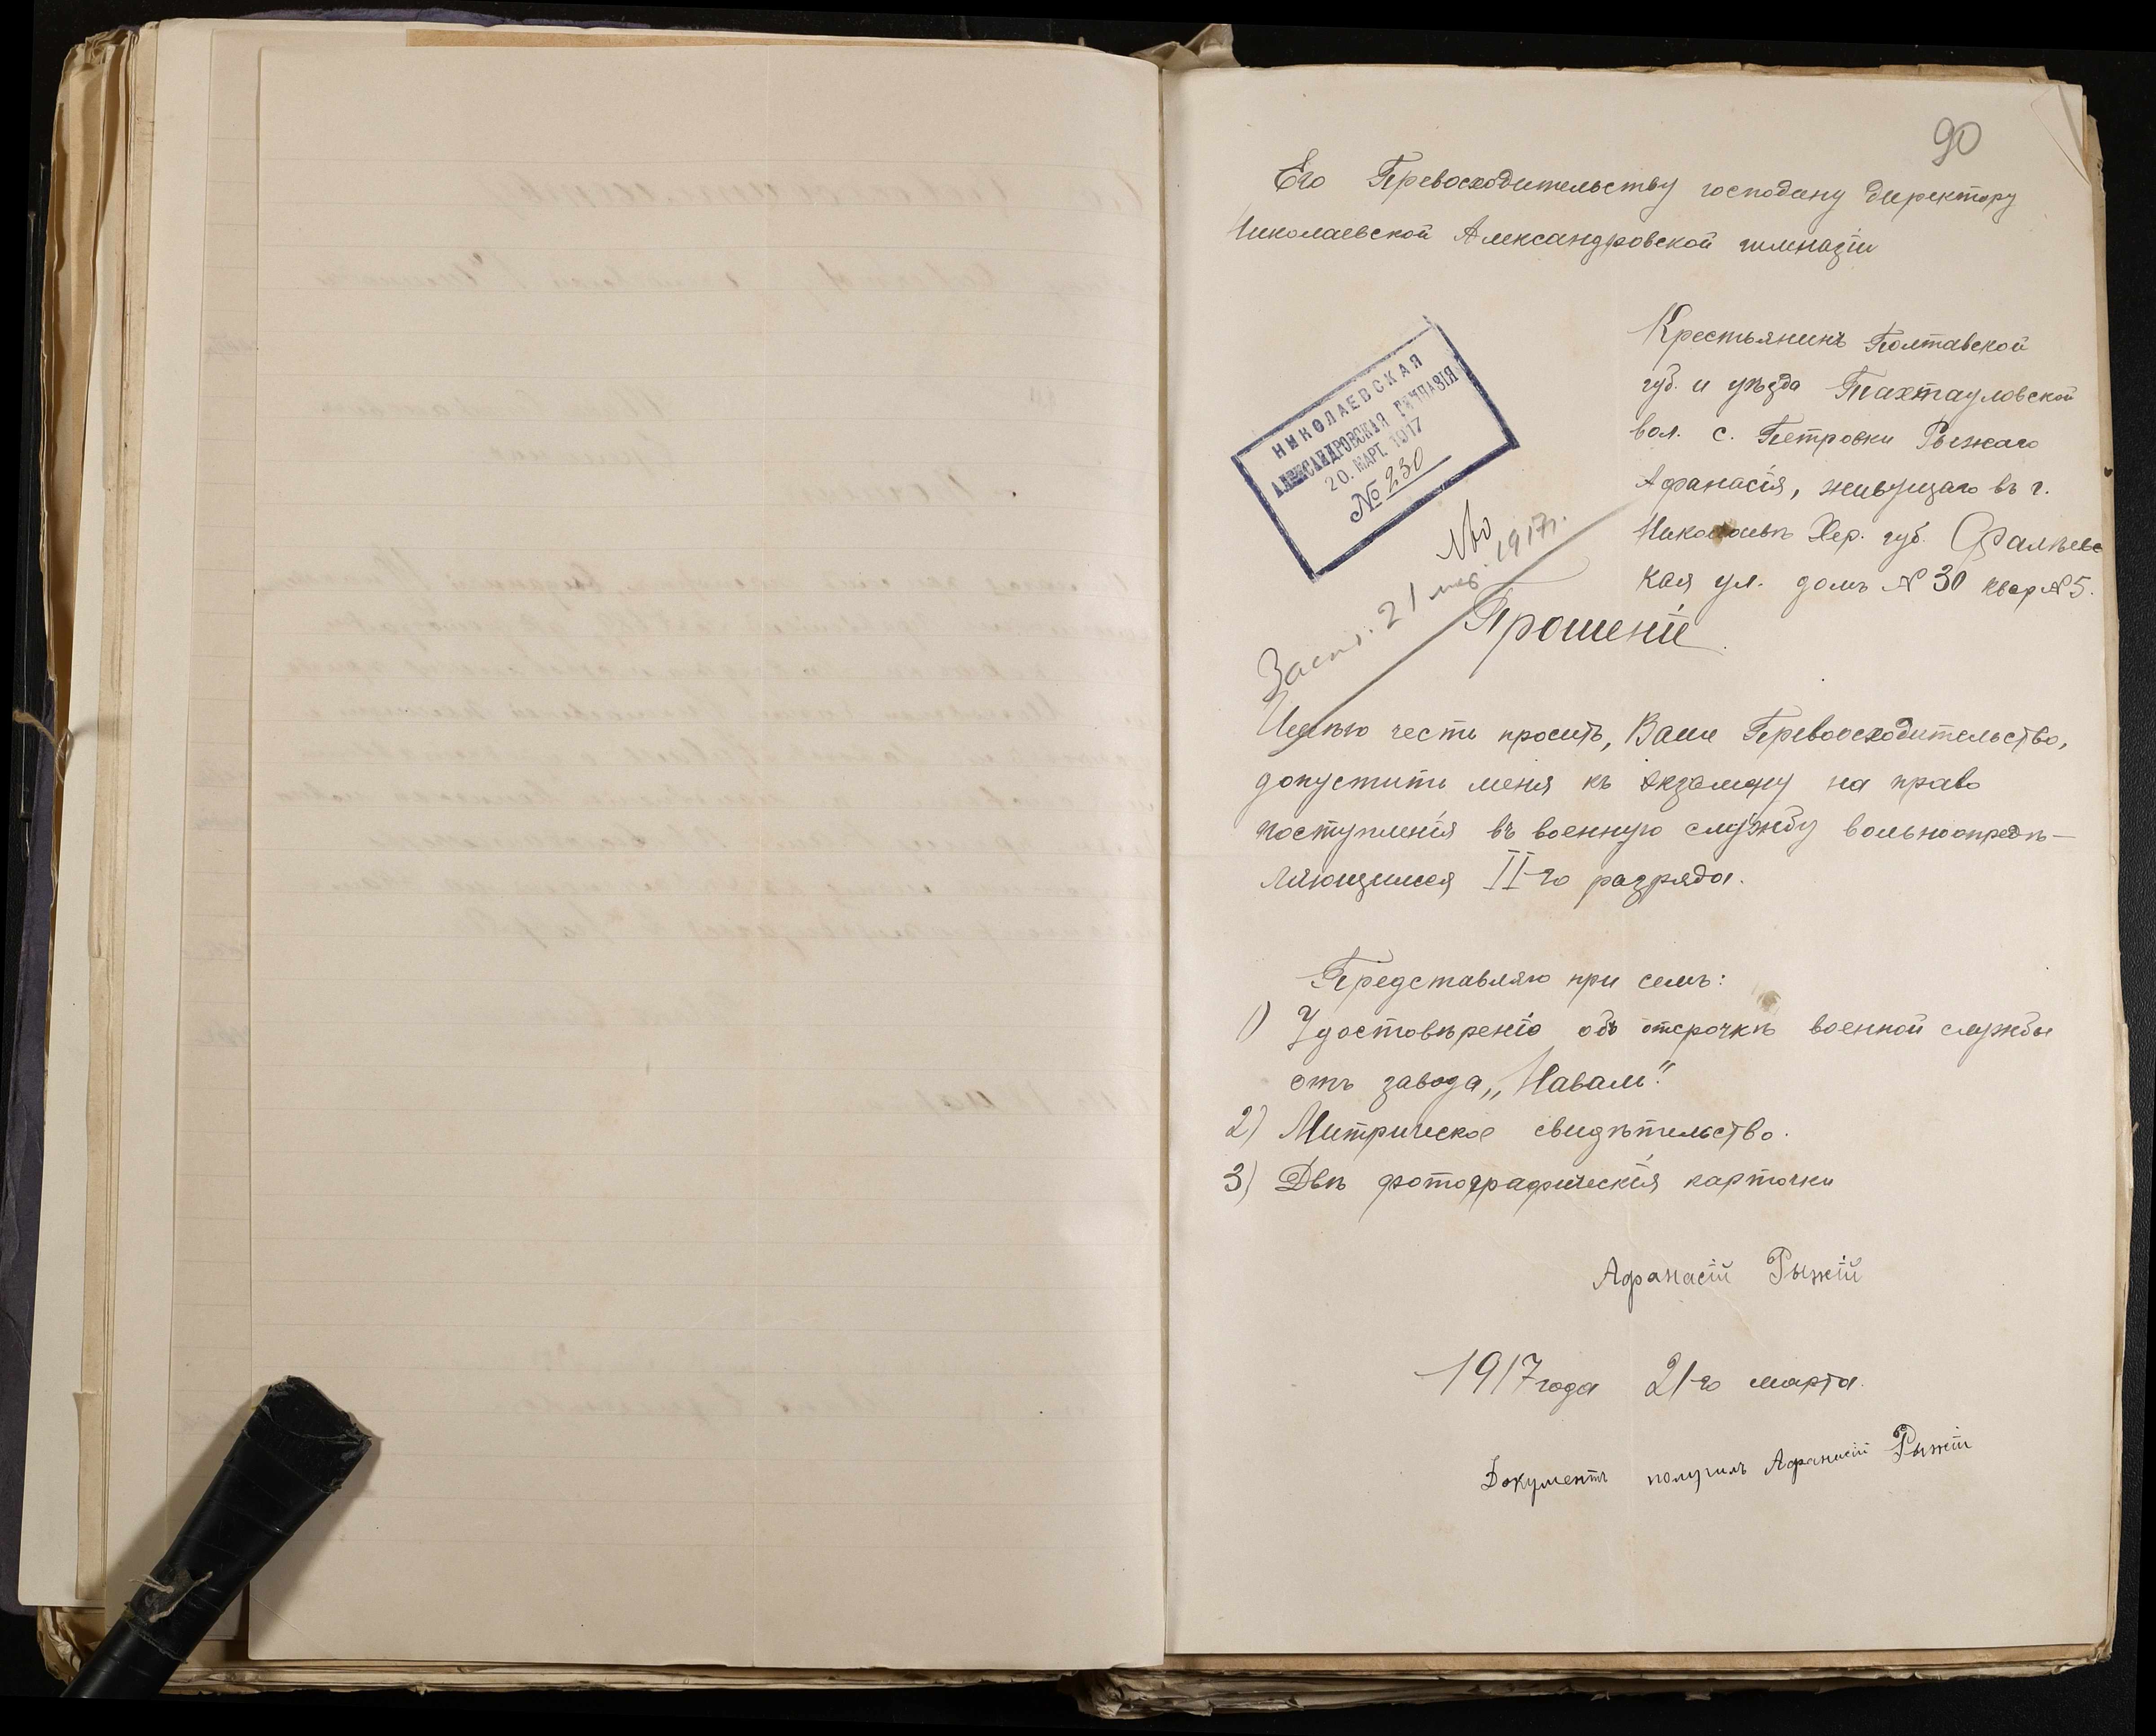 90
Его Превосходительству господину директору
Николаевской Александровской гимназіи
Крестьянинъ Полтавской
губ. и уѣзда Тахтауловской
вол. с. Петровки Рыжаго
Афанасія, живущаго въ г.
Николаевѣ Хер. губ. Фалѣевс
кая ул. домъ № 30 квар № 5.
НИКОЛАЕВСКАЯ
АЛЕКСАНДРОВСКАЯ ГИМНАЗІЯ
20. МАРТ. 1917
№ 230
21 мар. 1917г.
Прошеніе
Имѣю честь просить, Ваше Превосходительство,
допустить меня къ экзамену на право
поступленія въ военную службу вольноопредѣ-
ляющимся II-го разряда.
Представляю при семъ:
1) Удостовѣреніе объ отсрочкѣ военной службы
отъ завода „Наваль".
2) Митрическое свидѣтельство.
3) Двѣ фотографическія карточки
Афанасій Рыжій
1917 года 21-го марта.
Документъ получилъ Афанасій Рыжій